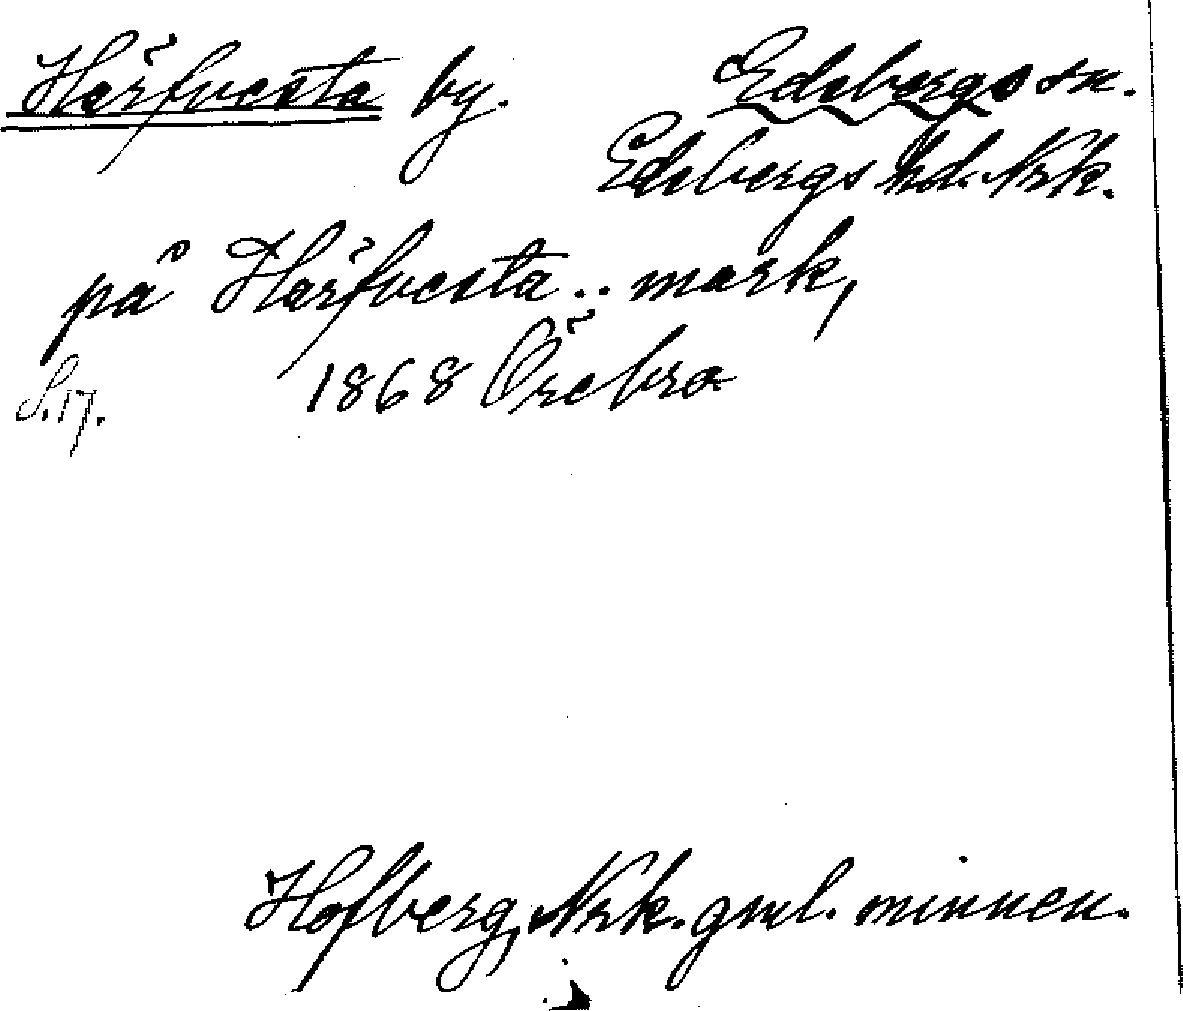 Härfvesta by. Edsbergs sn.
Edsbergs hd. Nrk.
på Härfvesta .. mark,
S. 17. 1868 Örebro
Hofberg, Nrk. gml. minnen.